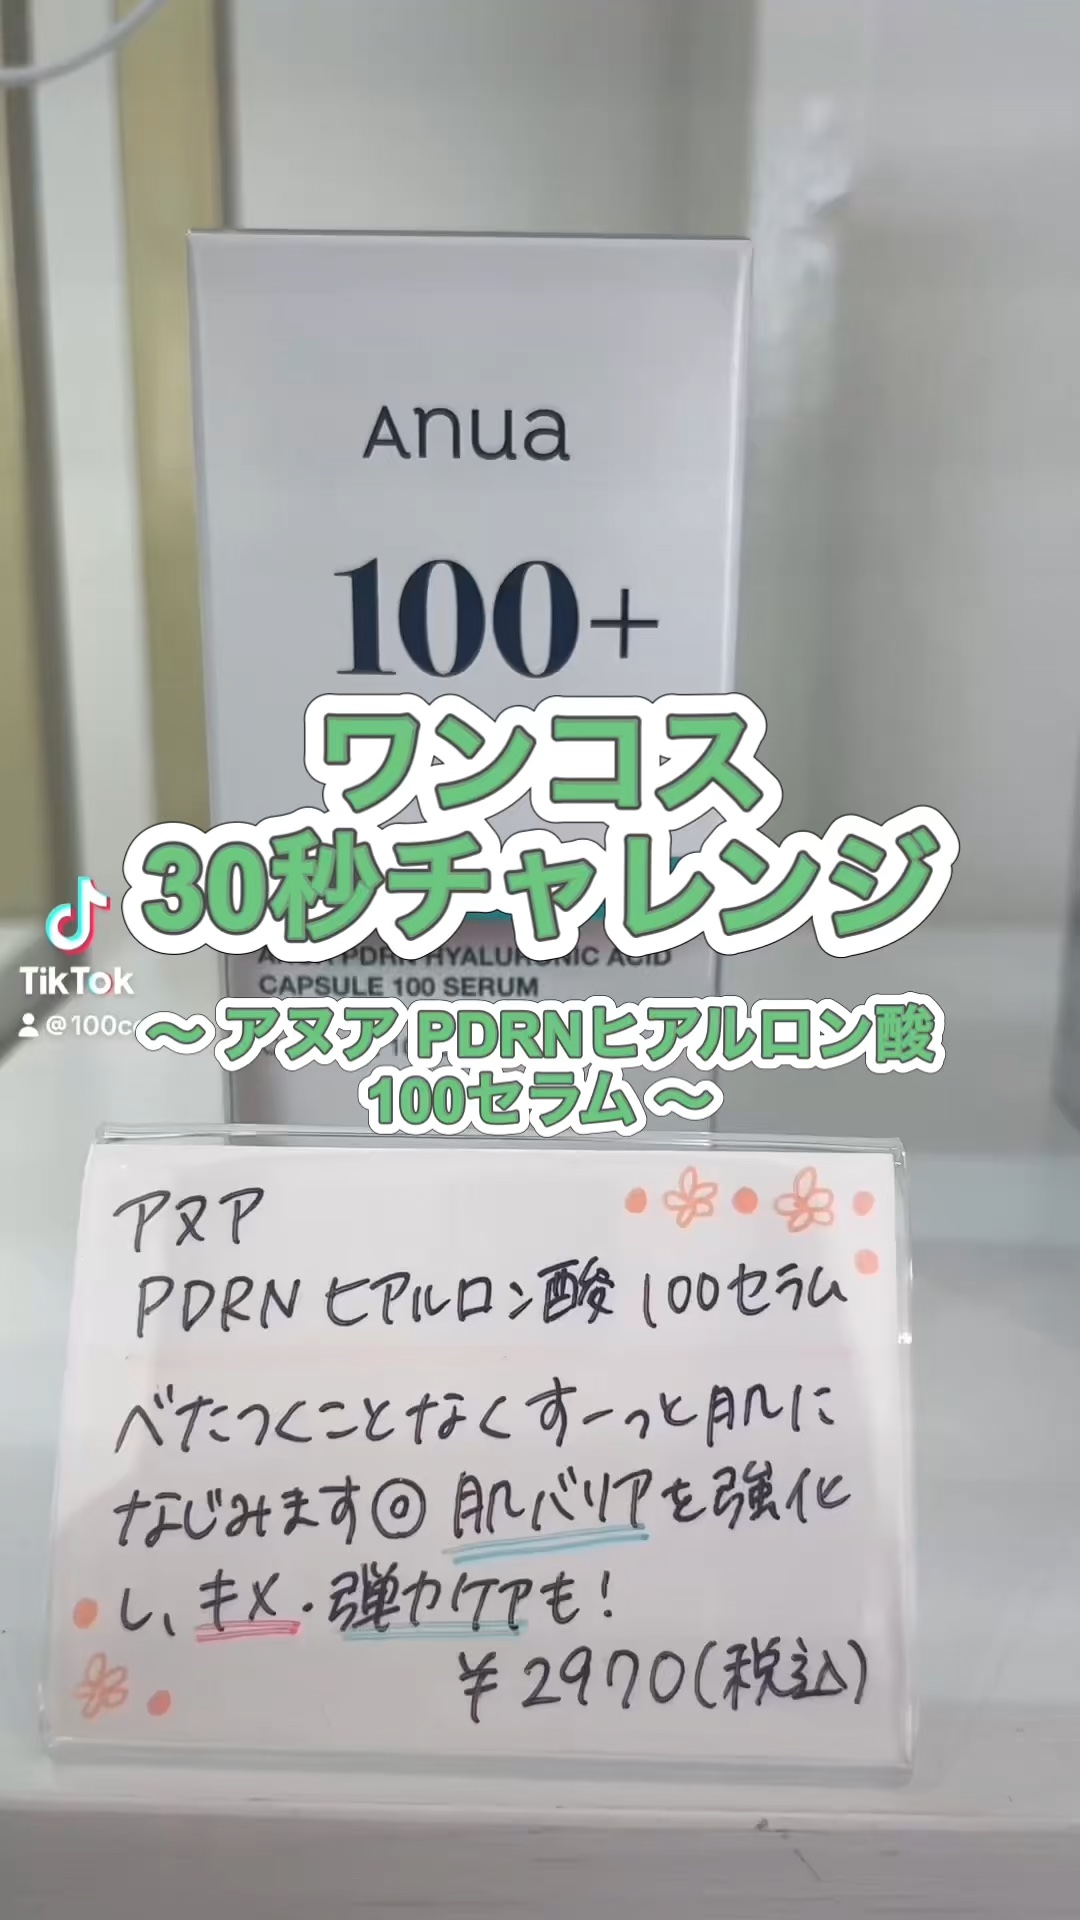 Anua
100+
ワンコス
30秒チャレンジ
PDRN HYALURONIC ACID
CAPSULE 100 SERUM
TikTok
@100c
～ アヌア PDRNヒアルロン酸
100セラム ～
アヌア
PDRN ヒアルロン酸 100セラム
べたつくことなくすーっと肌に
なじみます◎ 肌バリアを強化
し、キメ・弾力ケアも!
¥2970(税込)